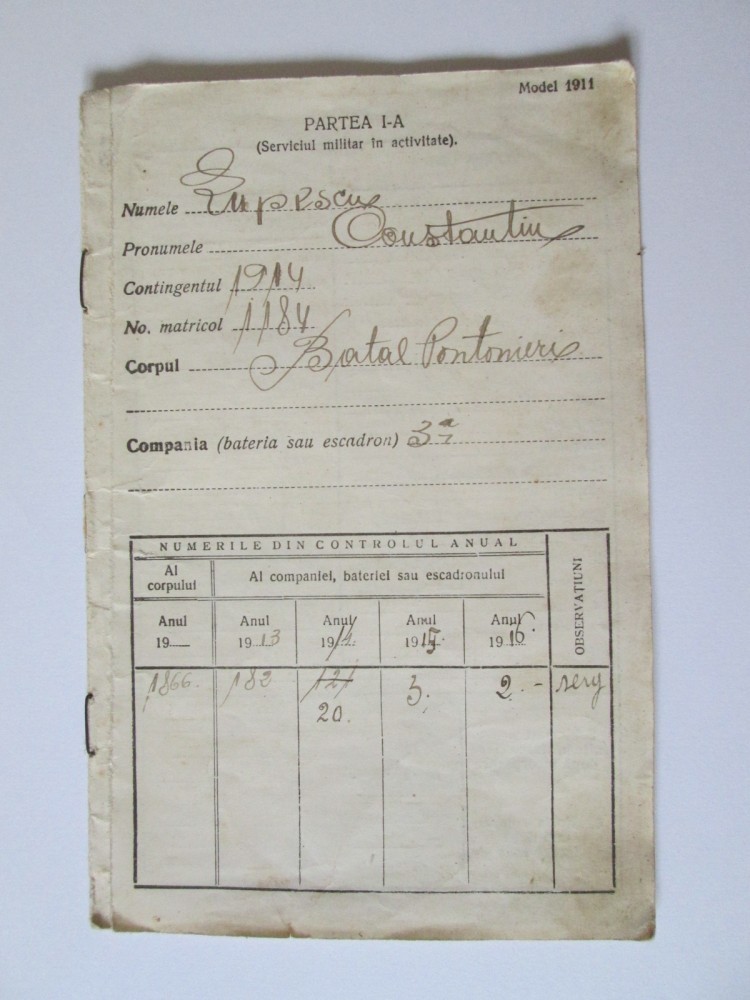 Model 1911
PARTEA I-A
(Serviciul militar în activitate).
Numele Lupescu
Pronumele Constantin
Contingentul 1914
No. matricol 1184
Corpul Batal Pontonieri
Compania (bateria sau escadron) 3ª
NUMERILE DIN CONTROLUL ANUAL
OBSERVAȚIUNI
Al corpului
Al companiei, bateriei sau escadronului
Anul 19 Anul 1913 Anul 1914 Anul 1915 Anul 1916
1866. 182 121 3. 2.- serg
20.